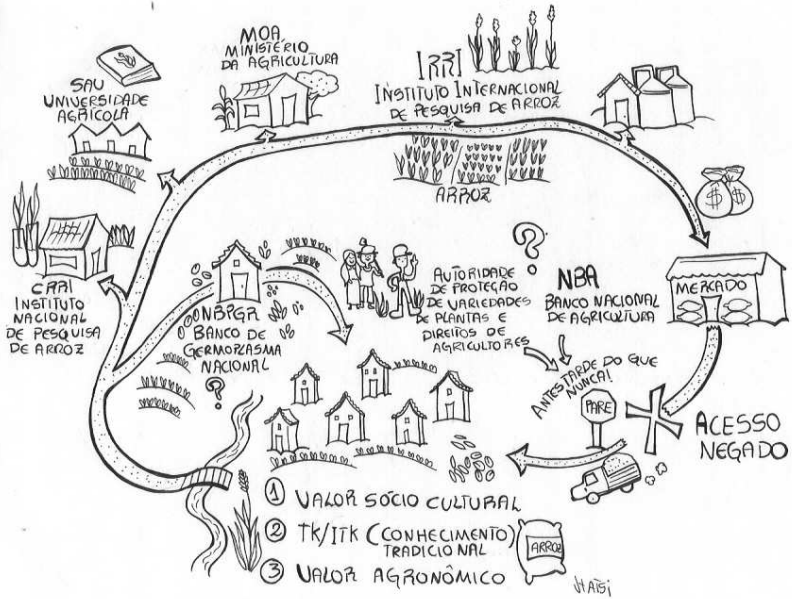 SAU
UNIVERSIDADE
AGRÍCOLA
MOA
MINISTÉRIO
DA AGRICULTURA
IRRI
INSTITUTO INTERNACIONAL
DE PESQUISA DE ARROZ
ARROZ
$ $
CRRI
INSTITUTO
NACIONAL
DE PESQUISA
DE ARROZ
NBPGR
BANCO DE
GERMOPLASMA
NACIONAL
?
?
AUTORIDADE
DE PROTEÇÃO
DE VARIEDADES
DE PLANTAS E
DIREITOS DE
AGRICULTORES
NBA
BANCO NACIONAL
DE AGRICULTURA
MERCADO
ANTES TARDE DO QUE
NUNCA!
PARE
ACESSO
NEGADO
1 VALOR SÓCIO CULTURAL
2 TK/ITK (CONHECIMENTO)
TRADICIONAL
ARROZ
3 VALOR AGRONÔMICO